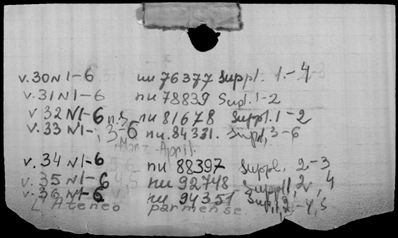 v.30 N 1-6 nu 76377 Suppl. 1.-4
v.31 N 1-6 nu 78839 Supl. 1-2
v 32 N 1-6 nu 81678 Suppl. 1-2
v.33 N 1- 3-6 nu. 84331. Supl, 3-6
Marz-April.
v.34 N 1-6 nu 88397 Suppl. 2-3
v.35 N 1-6 nu 92748 Suppl 2, 4
v.36 N 1-6 nu 94351 Sup
L'Ateneo parmense